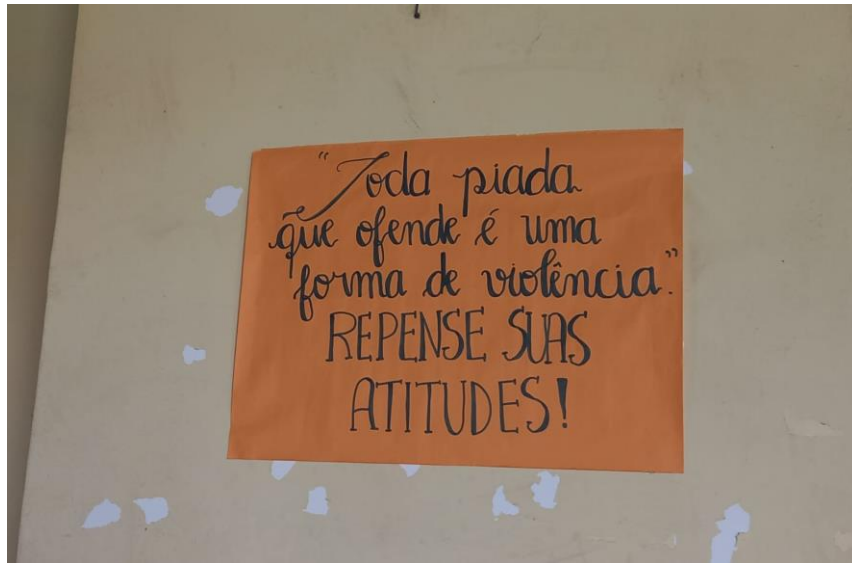 "Toda piada
que ofende é uma
forma de violência."
REPENSE SUAS
ATITUDES!